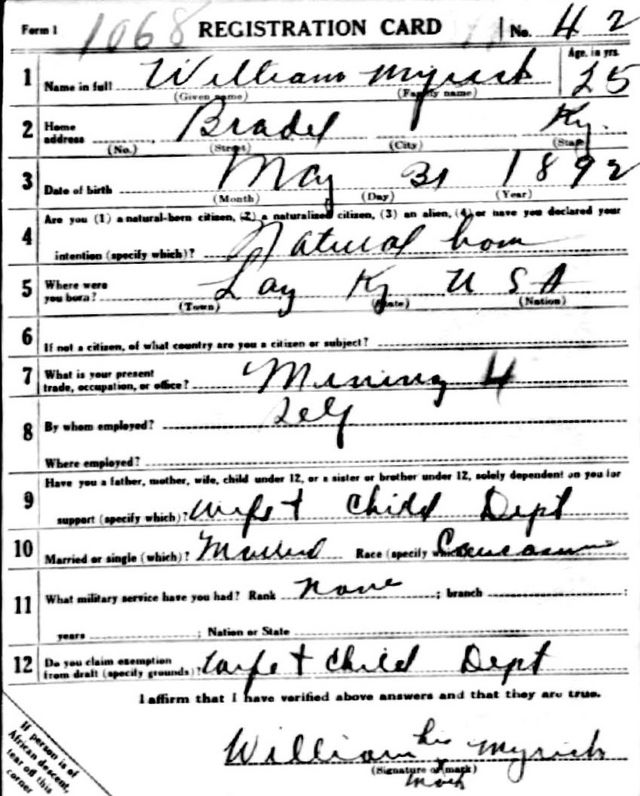 Form 1 1068 REGISTRATION CARD No. 42
1 Name in full William Myrick Age, in yrs. 25
(Given name) (Family name)
2 Home address Bradel Ky.
(No.) (Street) (City) (State)
3 Date of birth May 31 1892
(Month) (Day) (Year)
4 Are you (1) a natural-born citizen, (2) a naturalized citizen, (3) an alien, (4) or have you declared your
intention (specify which)? Natural born
5 Where were you born? Lay Ky U S A
(Town) (State) (Nation)
6 If not a citizen, of what country are you a citizen or subject?
7 What is your present trade, occupation, or office? Mining 4
8 By whom employed? Self
Where employed?
9 Have you a father, mother, wife, child under 12, or a sister or brother under 12, solely dependent on you for
support (specify which)? Wife + Child Dept
10 Married or single (which)? Married Race (specify which)? Caucasian
11 What military service have you had? Rank None ; branch ;
years ; Nation or State
12 Do you claim exemption from draft (specify grounds)? Wife + Child Dept
I affirm that I have verified above answers and that they are true.
William his Myrick
(Signature or mark)
mark
If person is of
African descent,
tear off this
corner